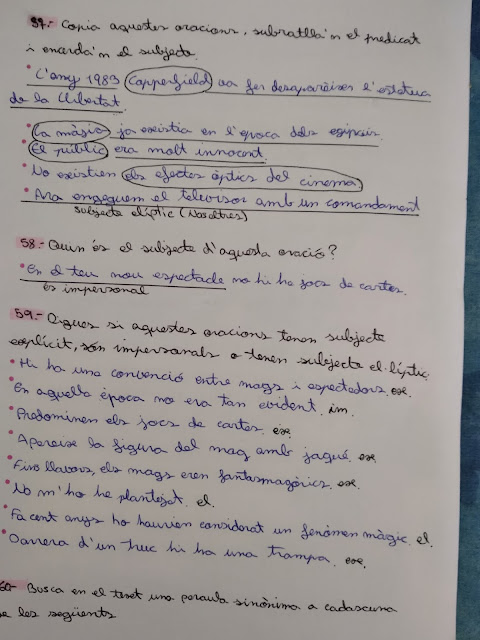 57.- Copia aquestes oracions, subratlla'n el predicat
i encercla'n el subjecte.
• L'any 1983 Copperfield va fer desaparèixer l'estàtua
de la Llibertat.
• La màgia ja existia en l'època dels egipcis.
• El públic era molt innocent.
• No existien els efectes òptics del cinema.
• Ara engeguem el televisor amb un comandament
subjecte elíptic (Nosaltres)
58.- Quin és el subjecte d'aquesta oració?
• En el teu nou espectacle no hi ha jocs de cartes.
és impersonal
59.- Digues si aquestes oracions tenen subjecte
explícit, són impersonals o tenen subjecte el·líptic.
• Hi ha una convenció entre mags i espectadors. exp.
• En aquella època no era tan evident. im.
• Predominen els jocs de cartes. exp.
• Apareix la figura del mag amb jaqué. ex.
• Fins llavors, els mags eren fantasmagòrics. exp.
• No m'ho he plantejat. el.
• Fa cent anys ho haurien considerat un fenòmen màgic. el.
• Darrera d'un truc hi ha una trampa. exp.
60- Busca en el text una paraula sinònima a cadascuna
de les següents